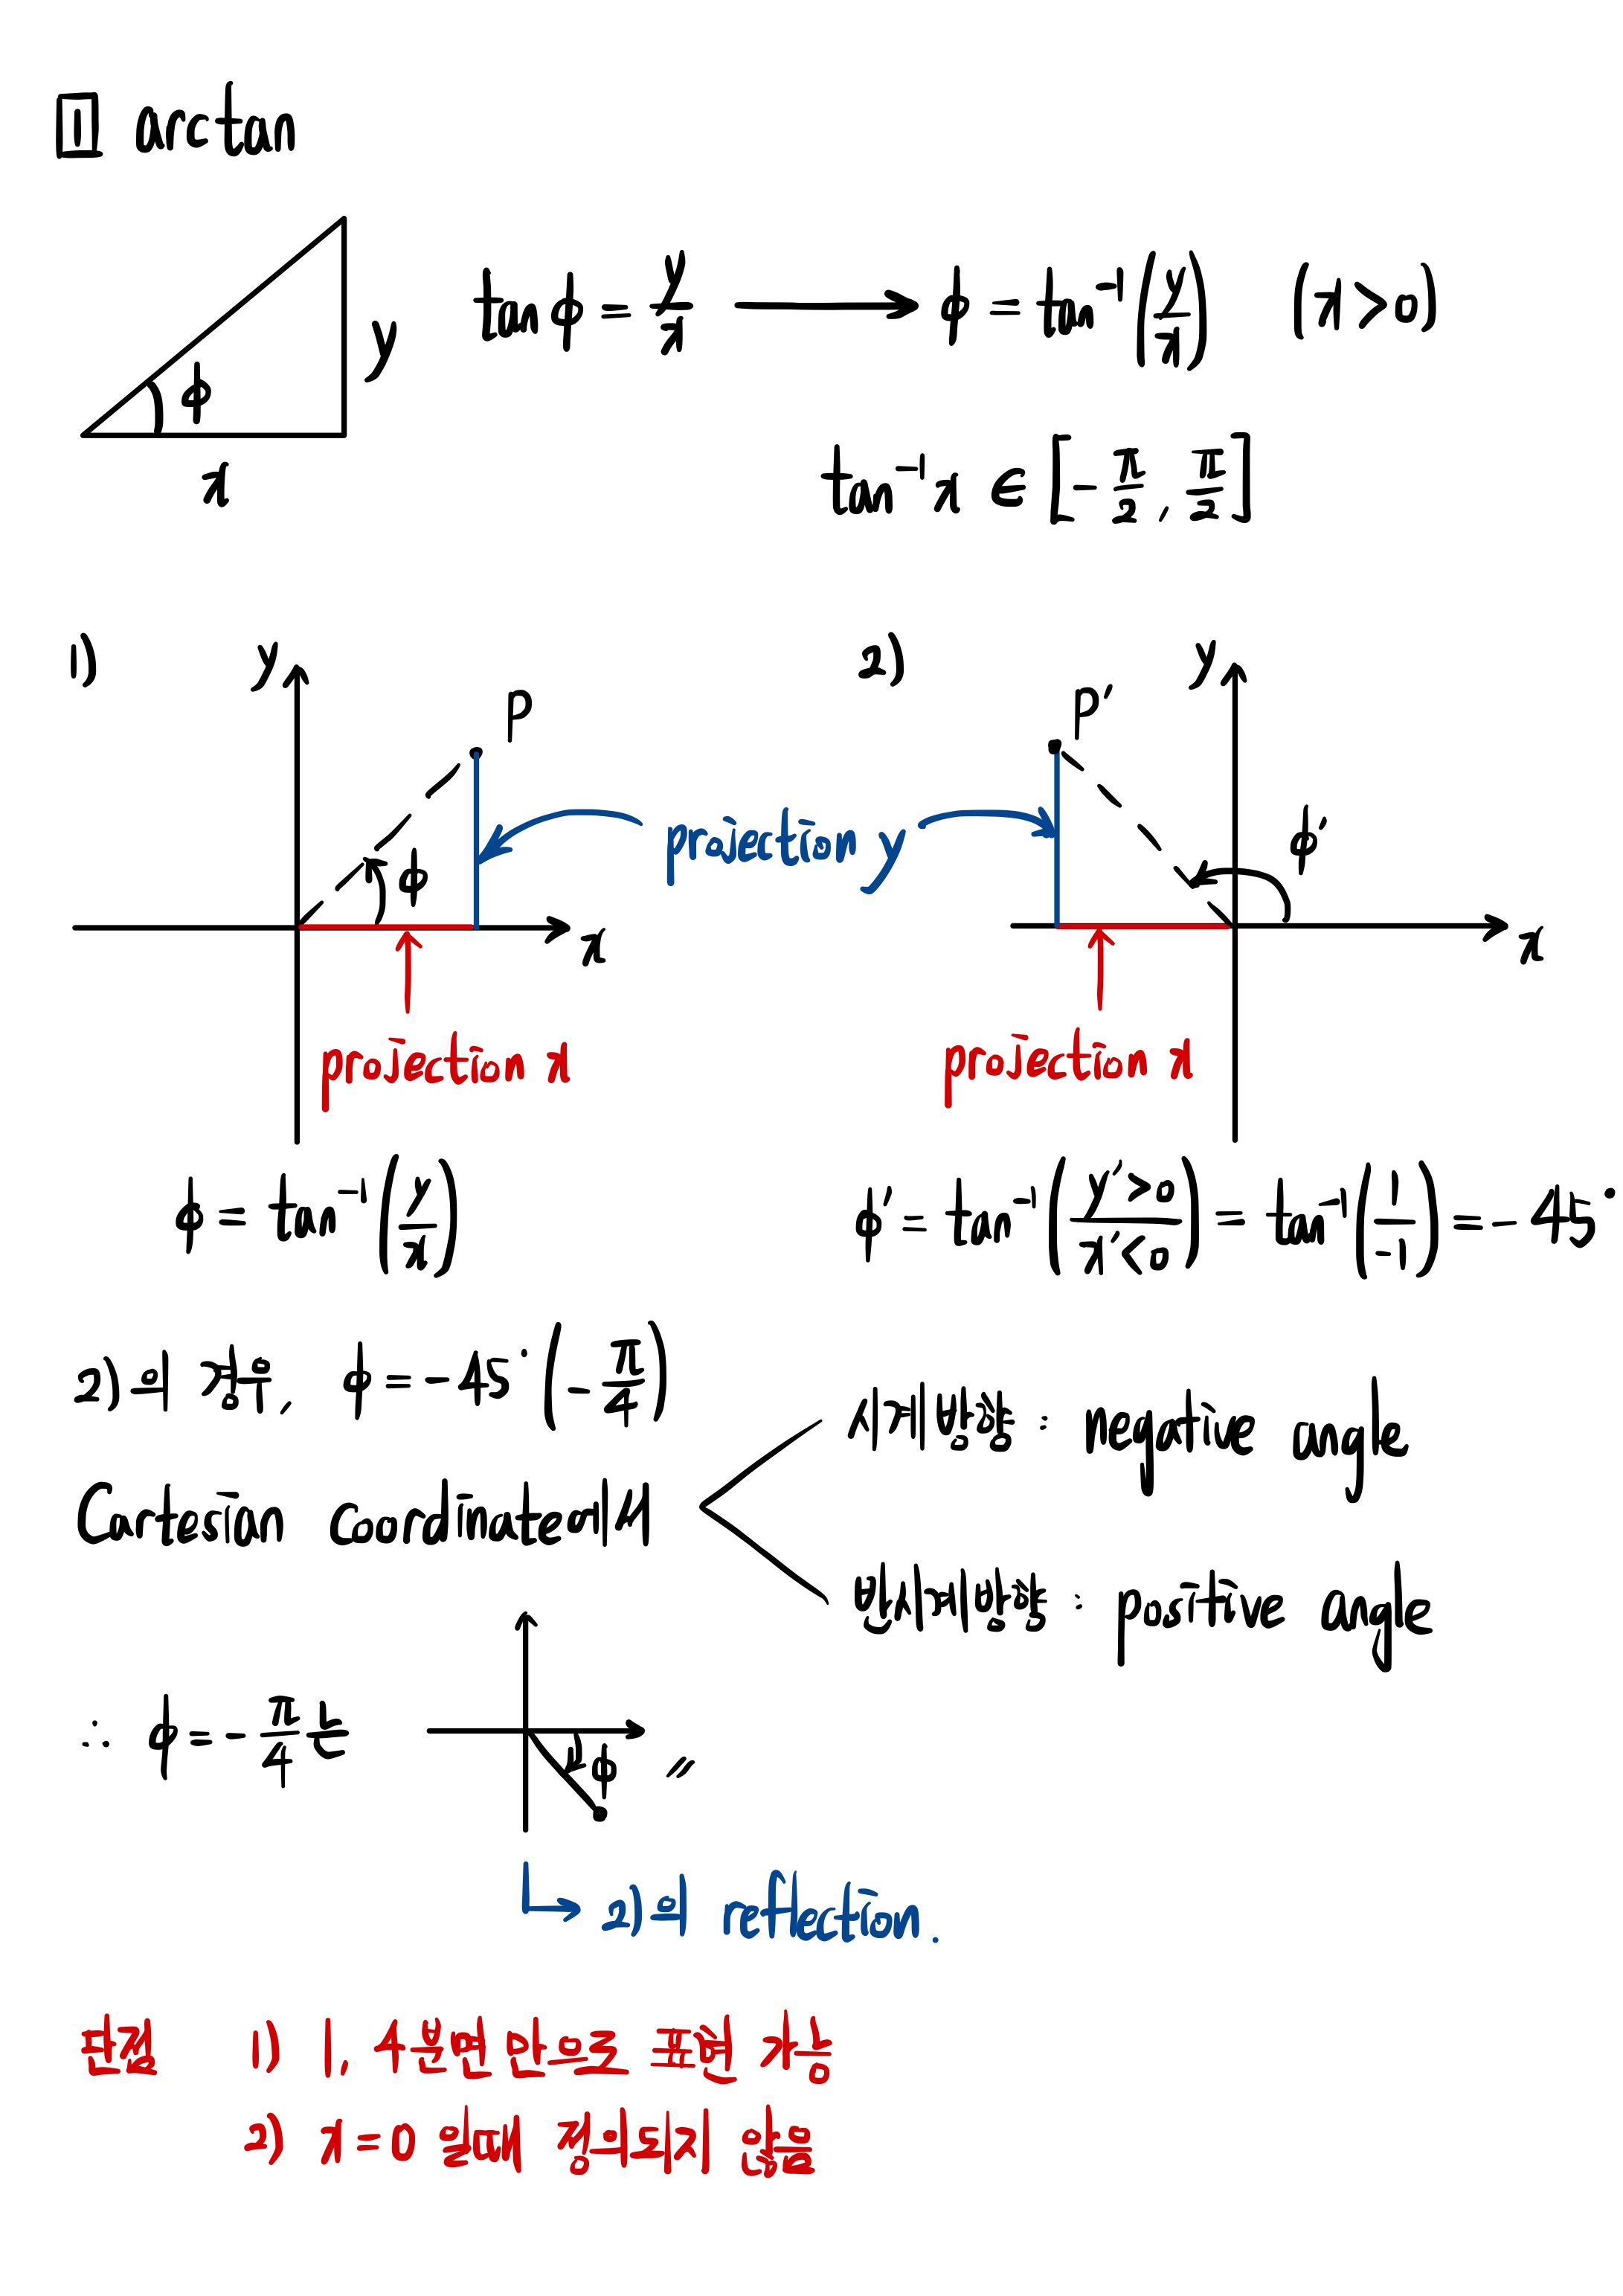 1 arctan
tan φ = y/x → φ = tan⁻¹(y/x) (x>0)
φ
y
x
tan⁻¹x ∈ [-π/2, π/2]
1)
y
P
φ
x
projection y
projection x
2)
y
P'
φ'
x
projection x
φ = tan⁻¹(y/x)
φ' = tan⁻¹(y'>0/x'<0) = tan⁻¹(1/-1) = -45°
2)의 경우, φ = -45° (-π/4)
Cartesian Coordinate에서
시계방향 : negative angle
반시계방향 : positive angle
∴ φ = -π/4 는
φ
〃
2)의 reflection.
단점 1) 1, 4분면 만으로 표현 가능
2) x=0 일때 정의되지 않음